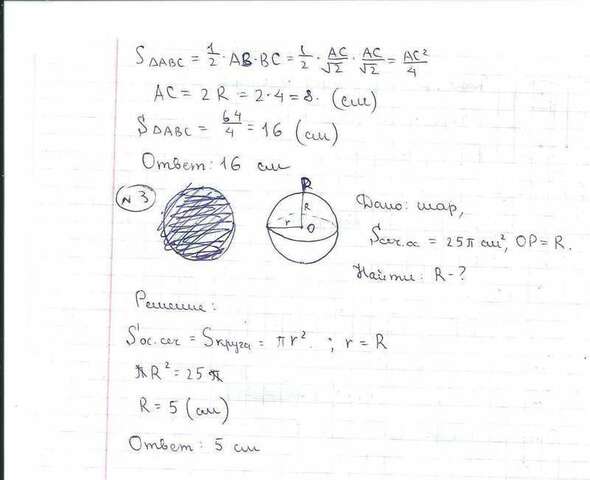 S△ABC = 1/2 · AB · BC = 1/2 · AC/√2 · AC/√2 = AC²/4
AC = 2R = 2·4 = 8. (см)
S△ABC = 64/4 = 16 (см)
Ответ: 16 см
№3
R
R
r
O
Дано: шар,
Sсеч.ос = 25π см², OP = R.
Найти: R-?
Решение:
Sос.сеч = Sкруга = πr². ; r = R
πR² = 25π
R = 5 (см)
Ответ: 5 см